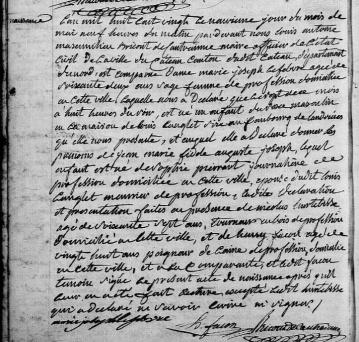 naissance
L'an mil huit cent vingt le neuvieme jour du mois de
mai neuf heures du matin pardevant nous Louis antoine
maximilien Bricout de maire officier de l'Etat
civil de la ville du Cateau Canton du dit Cateau, departement
du nord, est comparue Dame marie joseph Lefebvre agée de
soixante deux ans sage femme de profession domiciliée
en cette ville, laquelle nous a Declaré que le
a huit heures du soir, est né un enfant du sexe masculin
en la maison de Louis Langlet sise au faubourg de landrecies
qu'elle nous presente, et auquel elle a Declaré donner les
prenoms de jean marie auguste joseph, lequel
enfant est né de Sophie journaliere de
profession domiciliée en cette ville, epouse du dit Louis
Langlet meunier de profession, les dites Declaration
et presentation faites en presence de nicolas
agé de soixante sept ans, tourneur en bois de profession
Domicilié en cette ville, et de henry facon agé de
vingt huit ans peigneur de laine de profession, domicilié
en cette ville, et a la comparante, et le dit facon
temoin signé le present acte de naissance après qu'il
leur en a été fait lecture excepté le dit
qui a declaré ne savoir ecrire ni signer /
h. facon